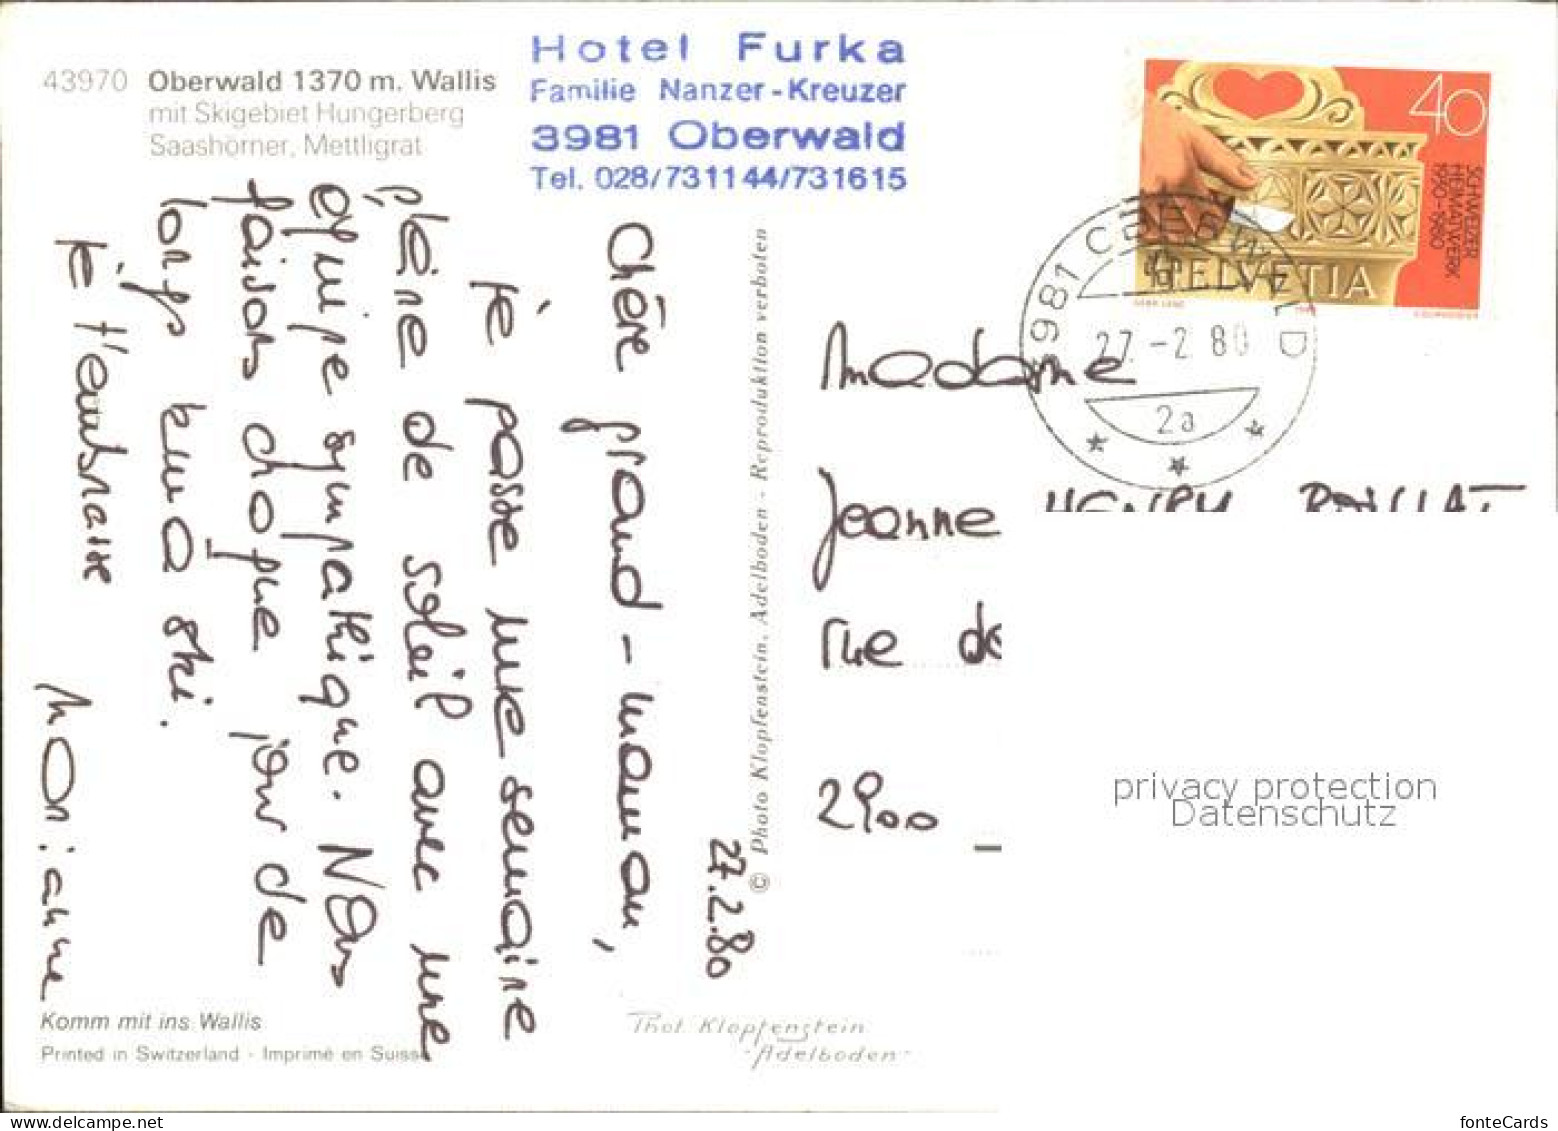 43970 Oberwald 1370 m. Wallis
mit Skigebiet Hungerberg
Saashörner, Mettligrat
Hotel Furka
Familie Nanzer-Kreuzer
3981 Oberwald
Tel. 028/731144/731615
40
SCHWEIZER
HEIMATWERK
1930-1980
HELVETIA
3981 OBERWALD
27.-2.80
2a
27.2.80
Chère grand-maman,
je passe une semaine
pleine de soleil avec une
équipe sympathique. Nous
faisons chaque jour de
longs km à ski.
Je t'embrasse
Marianne
© Photo Klopfenstein, Adelboden - Reproduktion verboten
Madame
Jeanne HENRY
rue de
2900
privacy protection
Datenschutz
Komm mit ins Wallis
Printed in Switzerland - Imprimé en Suisse
Phot. Klopfenstein
-Adelboden-
fonteCards